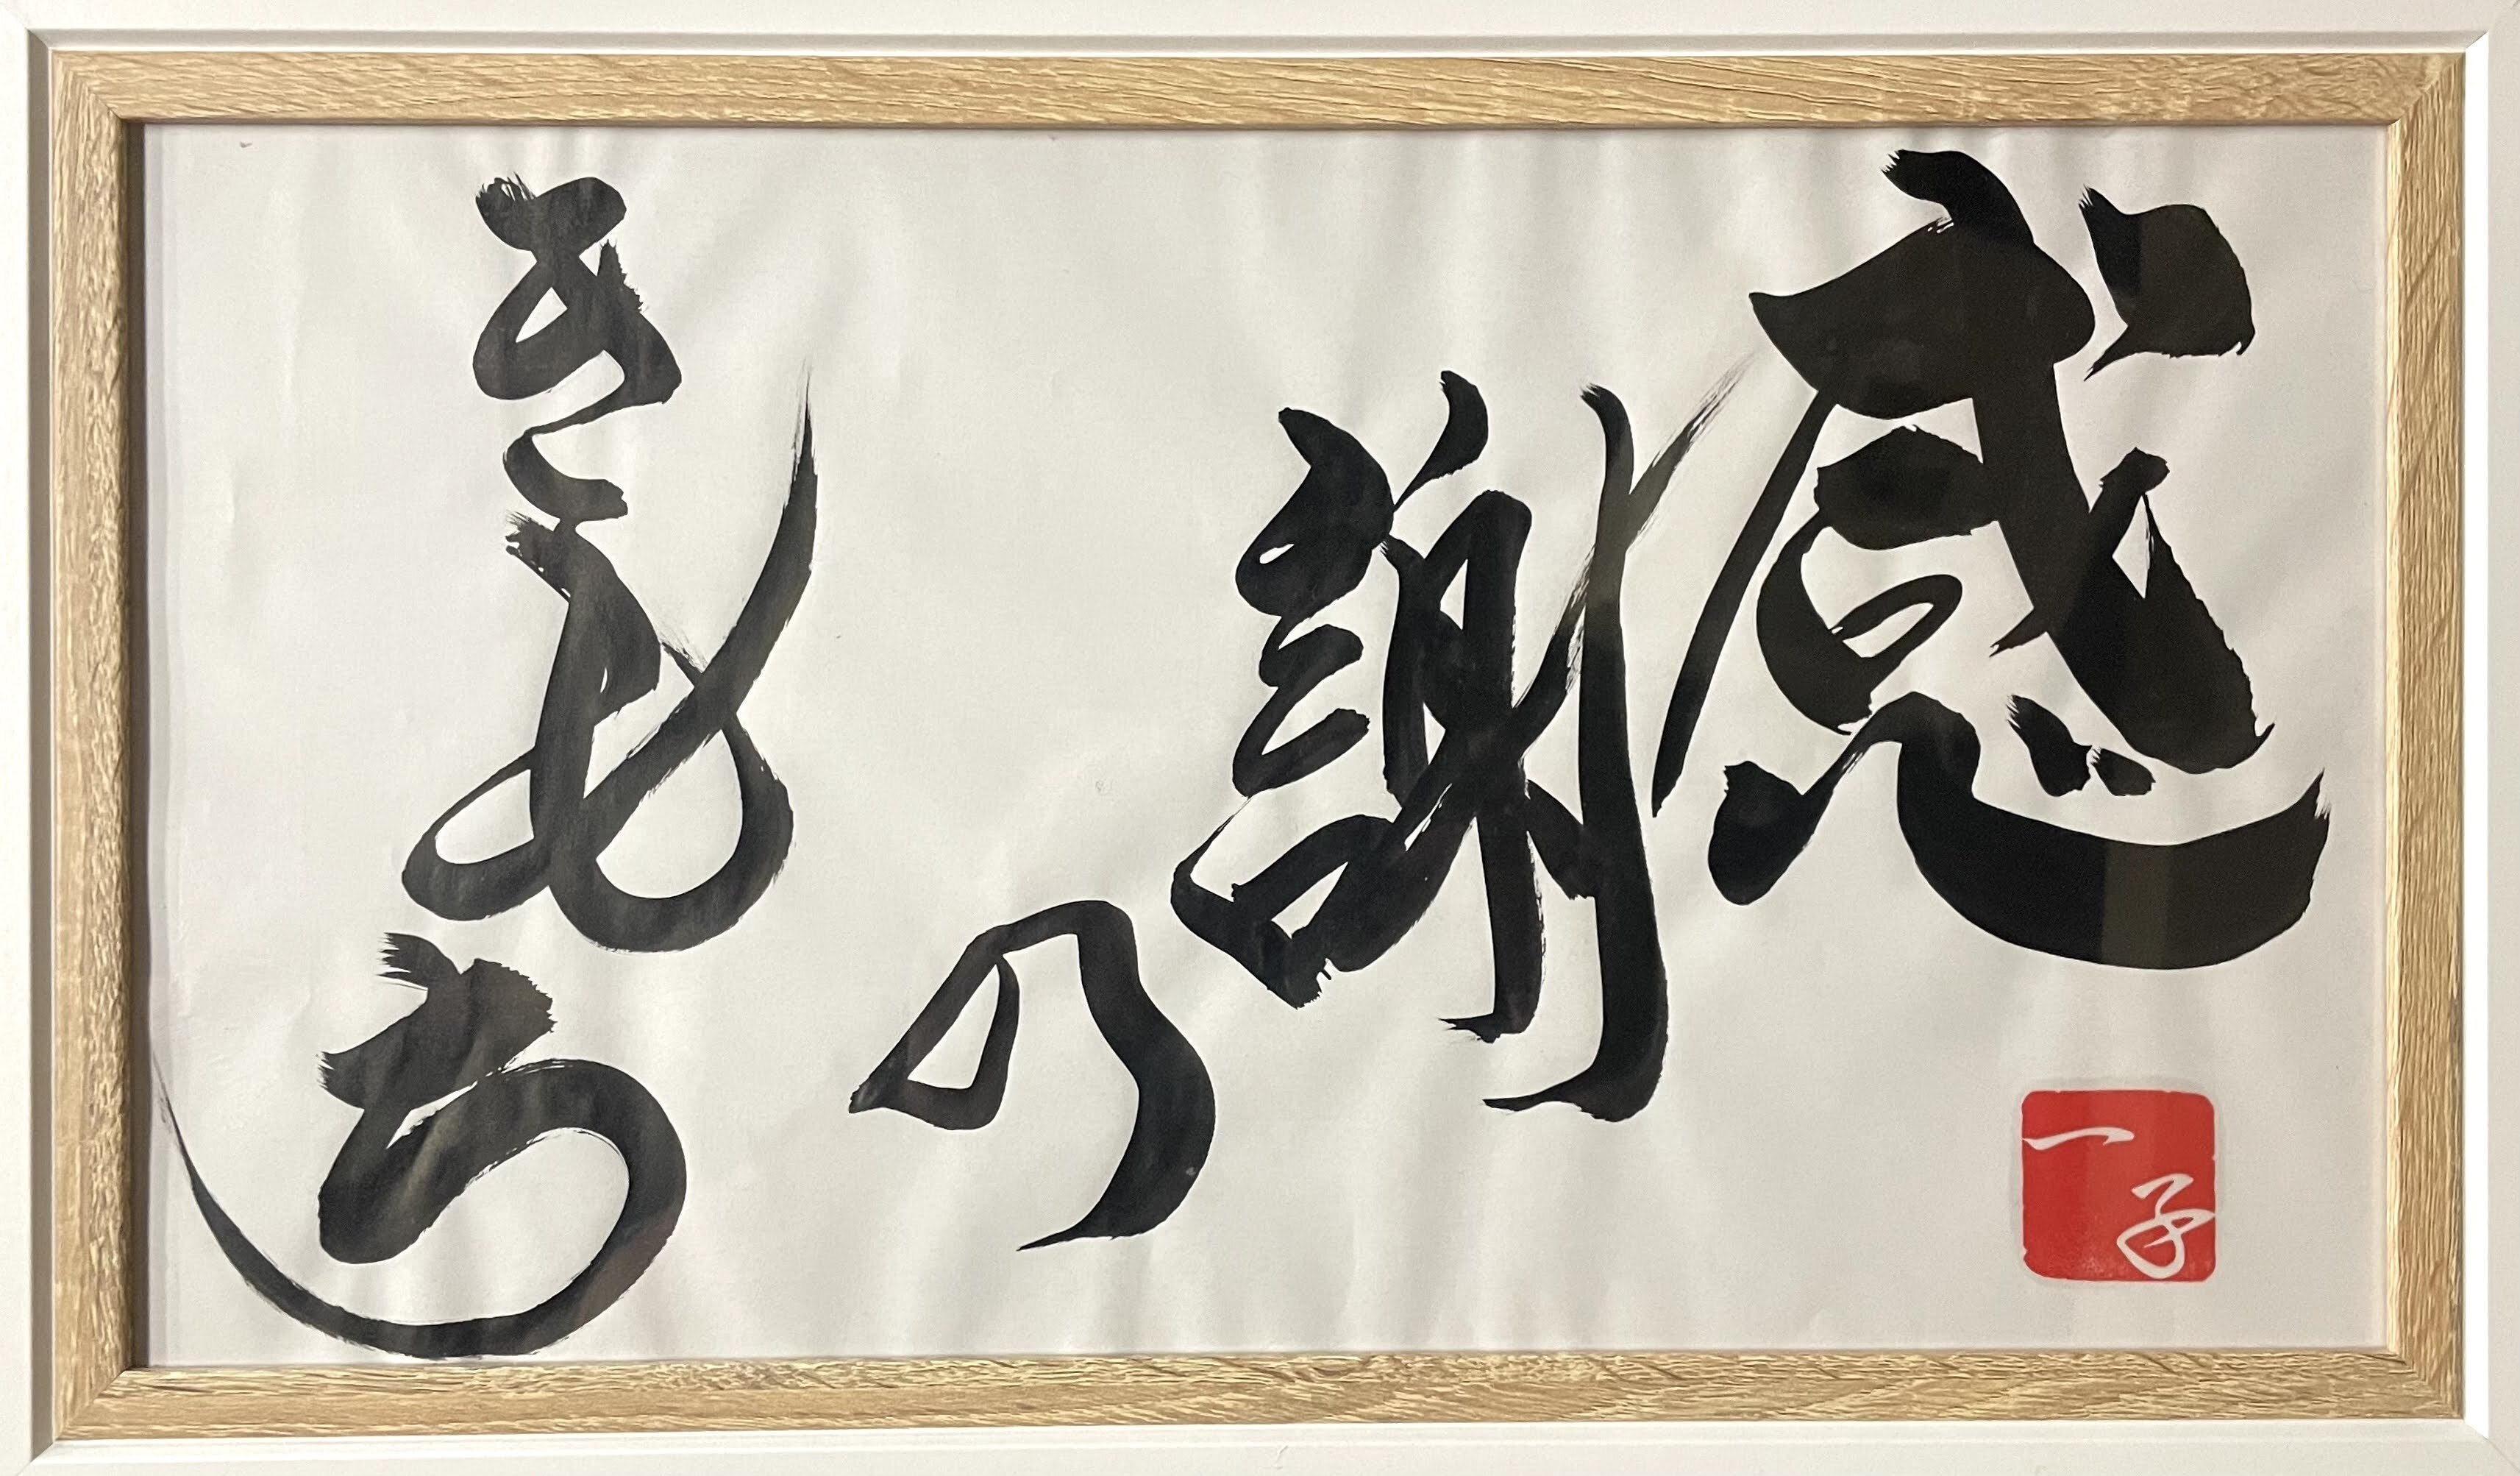 感
謝
の
きもち
一子